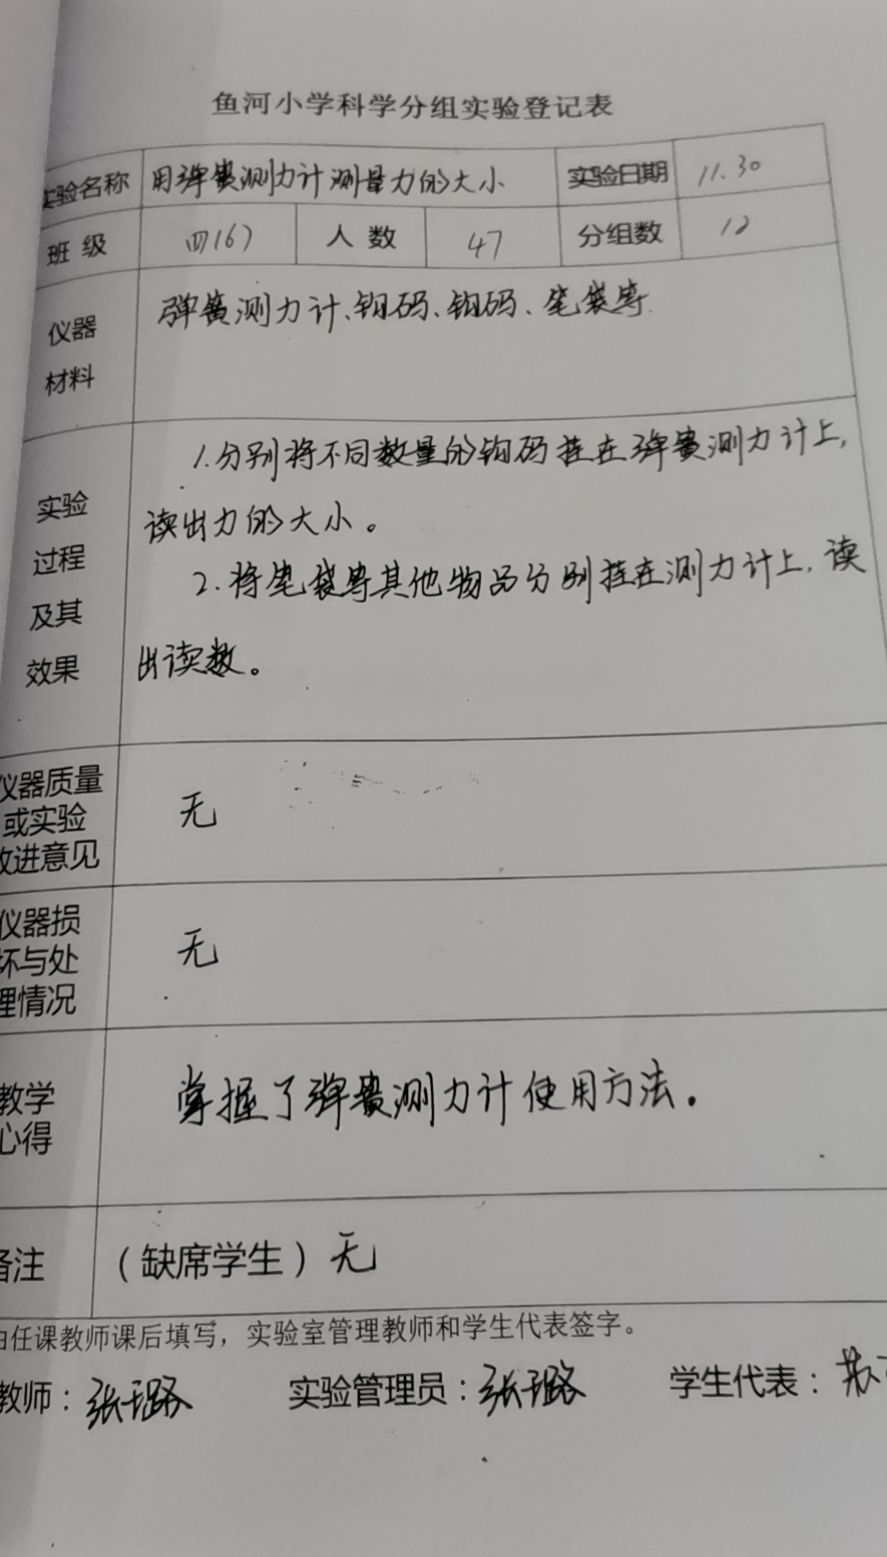 鱼河小学科学分组实验登记表
实验名称 用弹簧测力计测量力的大小 实验日期 11.30
班级 四(6) 人数 47 分组数 12
仪器材料 弹簧测力计、钩码、钩码、笔袋等
实验过程及其效果
1.分别将不同数量的钩码挂在弹簧测力计上,
读出力的大小。
2.将笔袋等其他物品分别挂在测力计上,读
出读数。
仪器质量
或实验
改进意见 无
仪器损
坏与处
理情况 无
教学
心得 掌握了弹簧测力计使用方法。
备注 (缺席学生)无
由任课教师课后填写,实验室管理教师和学生代表签字。
教师:张璐 实验管理员:张璐 学生代表:苏